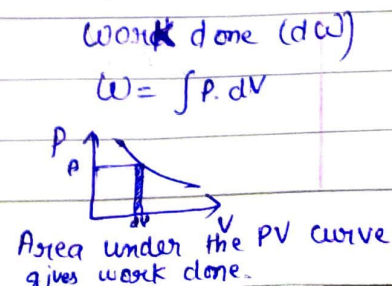 Work done (dω)
ω = ∫ P. dV
P
P
dV
V
Area under the PV curve
gives work done.